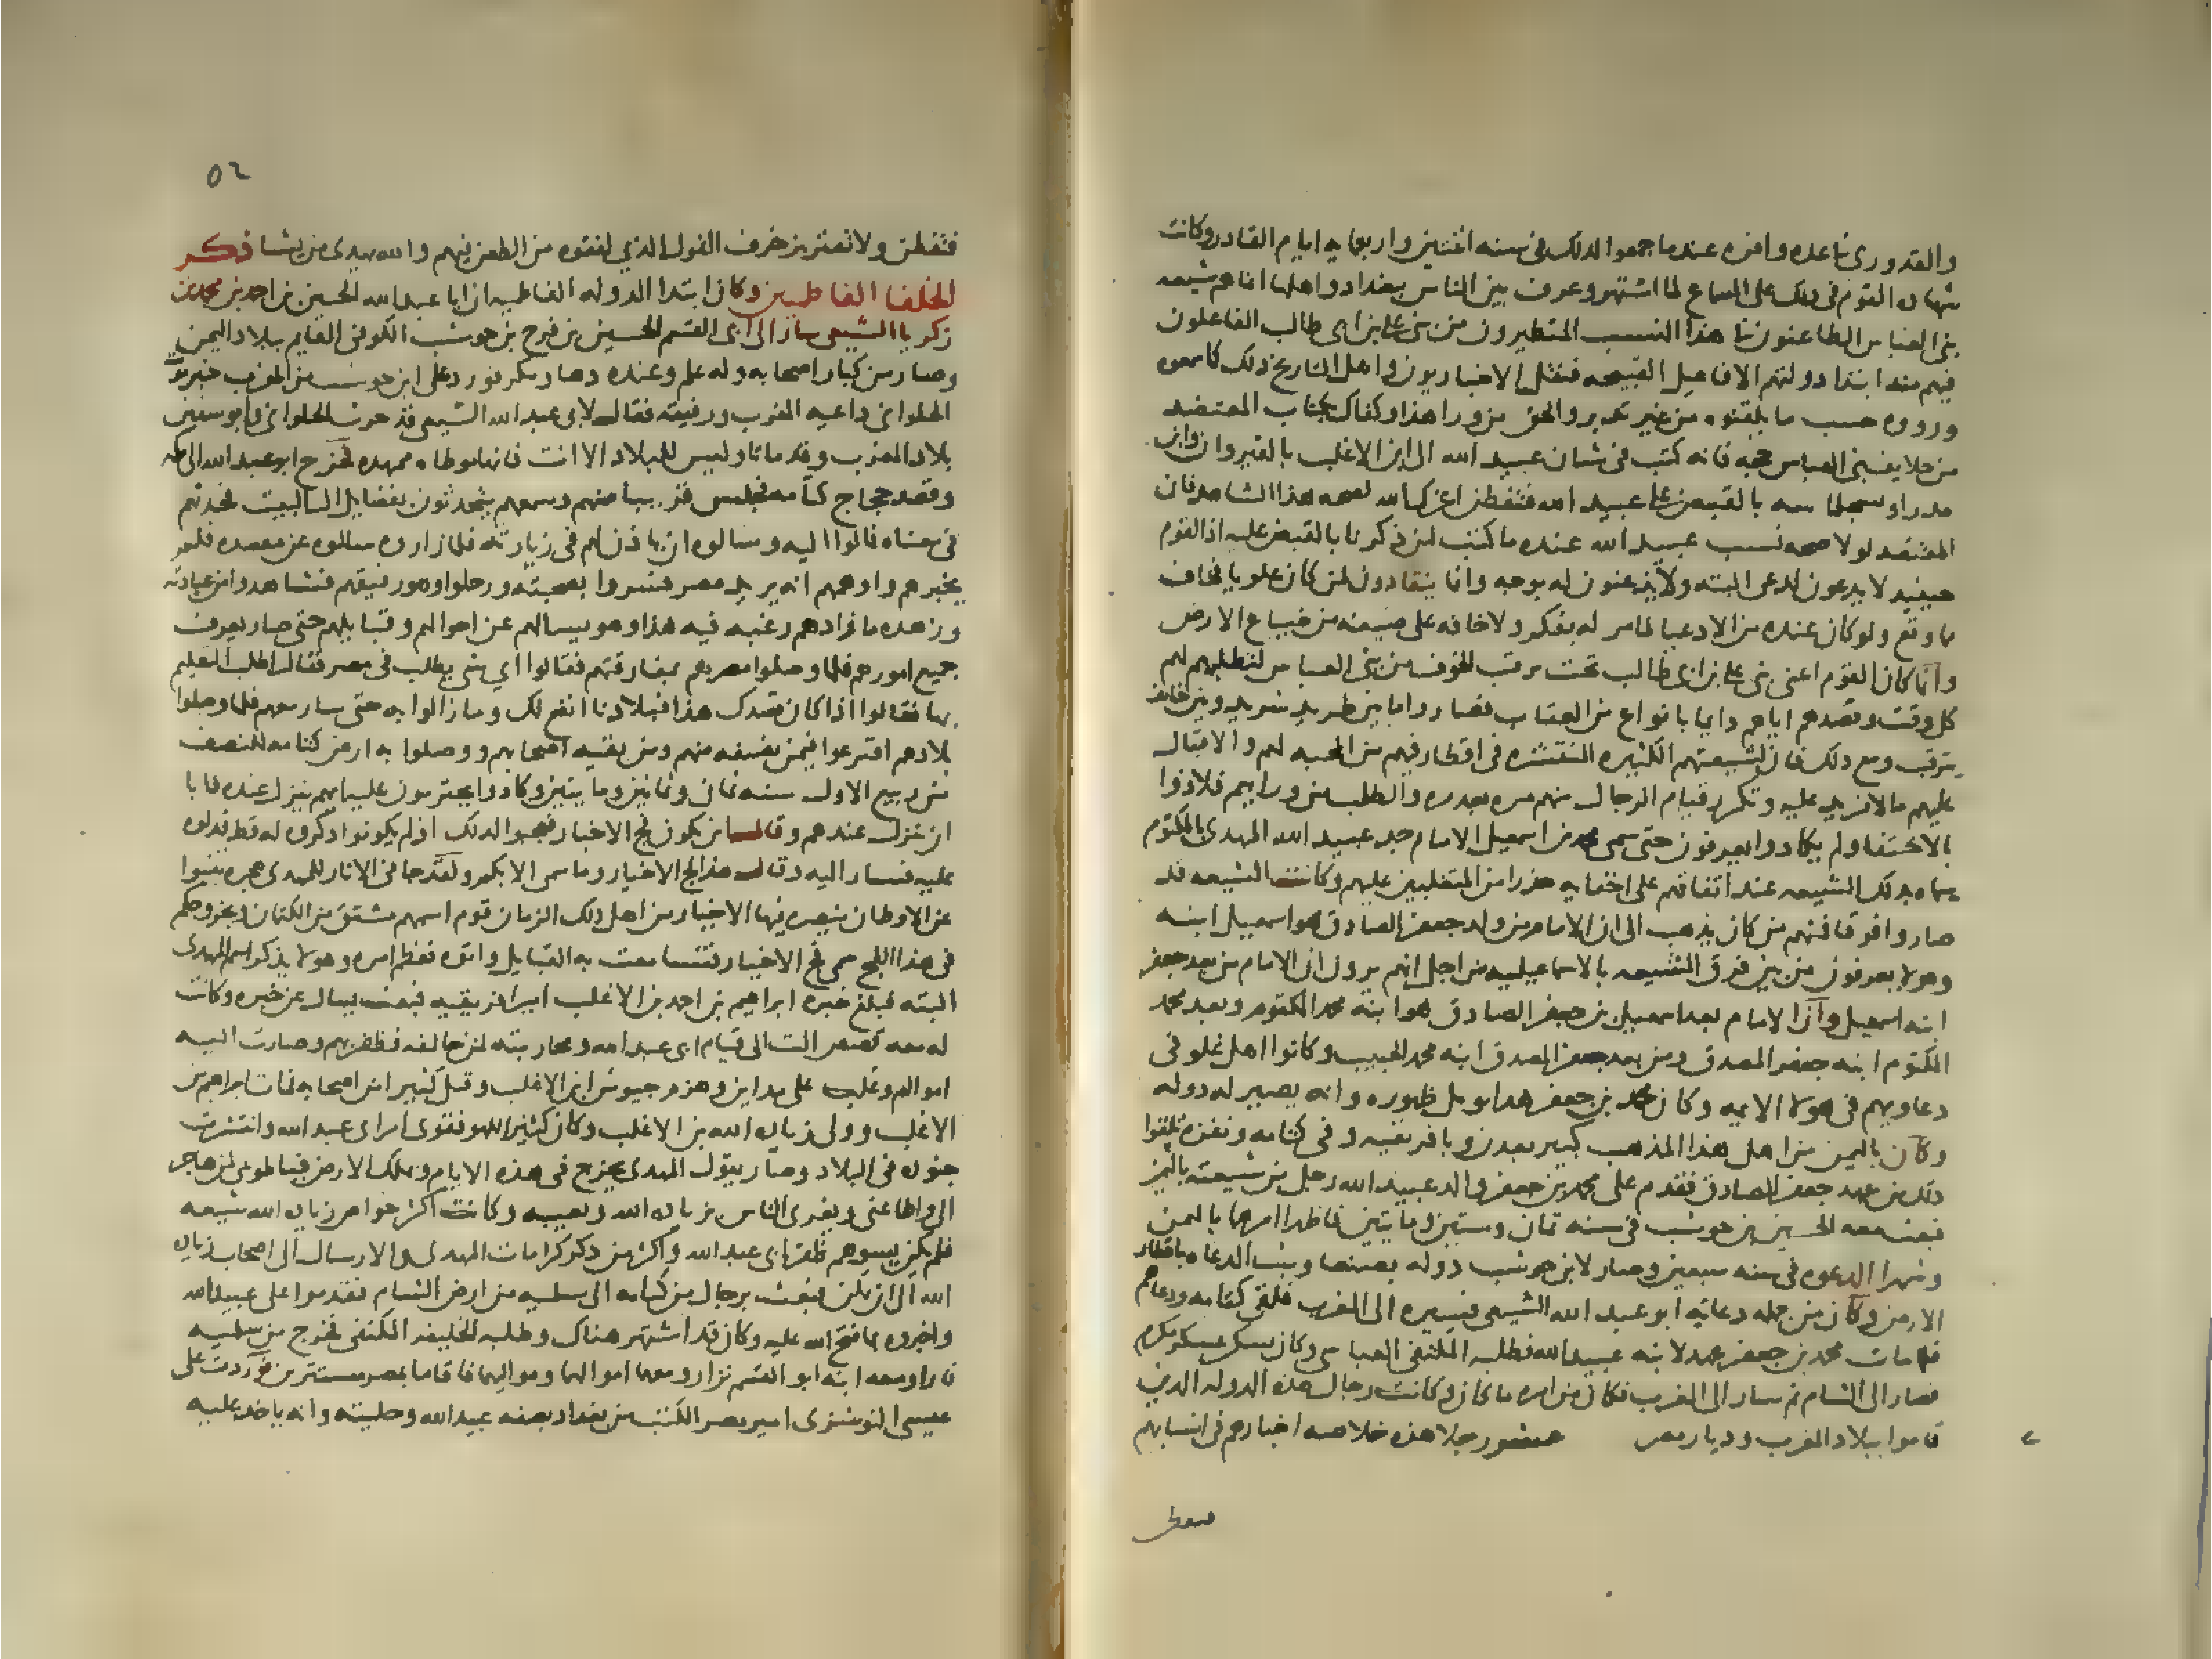 والقدوري في عده وافره عندما جمعوا لذلك في سنه اثنتين واربعمايه ايام القادر وكانت
شهاده القوم في ذلك على السماع لما اشتهر وعرف بين الناس ببغداد واهلها انما هم شيعه
بني العباس الطاعنون في هذا النسب المتطيرون من بني علي بن ابي طالب الفاعلون
فيهم منذ ابتدا دولتهم الافاعيل القبيحه فنقل الاخباريون واهل التاريخ ذلك كما سمعوه
ورووه حسب ما تلقنوه من غير تدبر والحق من ورا هذا وكفاك بكتاب المعتضد
من خلايف بني العباس حجه فانه كتب في شان عبيد الله الى ابن الاغلب بالقيروان وابن
مدرار بسجلماسه بالقبض على عبيد الله فتفطن اعزك الله لصحه هذا الشاهد فان
المعتضد لولا صحه نسب عبيد الله عنده ما كتب لمن ذكرنا بالقبض عليه اذ القوم
حينيد لا يدعون لدعي البته ولا يذعنون له بوجه وانما ينقادون لمن كان علويا فخاف
مما وقع ولو كان عنده من الادعيا لما مر له بفكر ولا خافه على ضيعه من ضياع الارض
وانما كان القوم اعني بني علي بن ابي طالب تحت ترقب الخوف من بني العباس لتطلبهم لهم
كل وقت وقصدهم اياهم دايما بانواع من العقاب فصاروا ما بين طريد شريد وبين خايف
يترقب ومع ذلك فان لشيعتهم الكثيره المنتشره في اقطار فيهم من المحبه لهم والاقبال
عليهم ما لا مزيد عليه وتكرر قيام الرجال منهم مره بعد مره والطلب من ورايهم فلاذوا
بالاختفا ولم يكادوا يعرفون حتى سمي محمد بن اسمعيل الامام جد عبيد الله المهدي بالمكتوم
سماه بذلك الشيعه عند اتفاقهم على اخفايه حذرا من المتغلبين عليهم وكانت الشيعه قد
صاروا فرقا فمنهم من كان يذهب الى ان الامام من ولد جعفر الصادق هو اسمعيل ابنه
وهولا يعرفون من بين فرق الشيعه بالاسماعيليه من اجل انهم يرون ان الامام من بعد جعفر
ابنه اسمعيل وان الامام بعد اسمعيل بن جعفر الصادق هو ابنه محمد المكتوم وبعد محمد
المكتوم ابنه جعفر المصدق ومن بعد جعفر المصدق ابنه محمد الحبيب وكانوا اهل غلو في
دعاويهم في هولا الايمه وكان محمد بن جعفر هذا يومل ظهوره وانه يصير له دوله
وكان باليمن من اهل هذا المذهب كثير بعدن وبافريقيه وفي كتامه ونفزه تلقوا
ذلك من عهد جعفر الصادق فقدم على محمد بن جعفر والد عبيد الله رجل من شيعته باليمن
فبعث معه الحسين بن حوشب في سنه ثمان وستين ومايتين فاظهرا امرهما باليمن
وشهرا الدعوه في سنه سبعين وصار لابن حوشب دوله بصنعا وبث الدعاه باقطار
الارض وكان من جمله دعاته ابو عبد الله الشيعي فسيره الى المغرب فلقي كتامه ودعاهم
فلما مات محمد بن جعفر عهد لابنه عبيد الله فطلبه المكتفي العباسي وكان يسكن عسكر مكرم
فصار الى الشام ثم سار الى المغرب فكان من امره ما كان وكانت رجال هذه الدوله الذين
قاموا ببلاد المغرب وديار مصر عشر رجلا هذه خلاصه اخبارهم في انسابهم
فتفطن
٥٢
فتفطن ولا تغتر بزخرف القول الذي لفقوه من الطعن فيهم والله يهدي من يشا ذكر
الخلفا الفاطميين وكان ابتدا الدوله الفاطميه ان ابا عبد الله الحسين بن احمد بن محمد بن
زكريا الشيعي سار الى ابي القسم الحسين بن فرح بن حوشب الكوفي القايم ببلاد اليمن
وصار من كبار اصحابه وله علم وعنده دها ومكر فورد على ابن حوشب من المغرب خبر موت
الحلواني داعيه المغرب ورفيقه فقال لابي عبد الله الشيعي قد حرث الحلواني وابو سفين
بلاد المغرب وقد ماتا وليس للبلاد الا انت فانها موطاه ممهده فخرج ابو عبد الله الى مكه
وقصد حجاج كتامه فجلس قريبا منهم وسمعهم يتحدثون بفضايل ال البيت فحدثهم
في معناه فمالوا اليه وسالوه ان ياذن لهم في زيارته فلما زاروه سالوه عن مقصده فلم
يخبرهم واوهمهم انه يريد مصر فسروا بصحبته ورحلوا وهو رفيقهم فشاهدوا من عبادته
وزهده ما زادهم رغبه فيه هذا وهو يسالهم عن احوالهم وقبايلهم حتى صار يعرف
جميع امورهم فلما وصلوا مصر هم بمفارقتهم فقالوا اي شي يطلب في مصر فقال اطلب التعليم
بها فقالوا اذا كان قصدك هذا فبلادنا انفع لك وما زالوا به حتى سار معهم فلما وصلوا
بلادهم اقترعوا فيمن يضيفه منهم ومن بقيه اصحابهم ووصلوا به ارض كتامه للنصف
من ربيع الاول سنه ثمان وثمانين ومايتين وكادوا يحتربون عليه ايهم ينزل عنده فابا
ان ينزل عندهم وقال اين يكون فج الاخيار فعجبوا لذلك اذ لم يكونوا ذكروه له قط فدلوه
عليه فسار اليه وقال هذا فج الاخيار وما سمي الا بكم ولقد جا في الاثار للمهدي هجره ينبوا
عن الاوطان ينصره فيها الاخيار من اهل ذلك الزمان قوم اسمهم مشتق من الكتمان وبخروجكم
في هذا الفج سمي فج الاخيار فتسامعت به القبايل واتوه فعظم امره وهو لا يذكر اسم المهدي
البته فبلغ خبره ابراهيم بن احمد بن الاغلب امير افريقيه فبعث يسال عن خبره وكانت
له معه قصص الت الى قيام ابي عبد الله ومحاربته لمن خالفه فظفر بهم وصارت اليه
اموالهم وغلب على مداين وهزم جيوش ابن الاغلب وقتل كثيرا من اصحابه فمات ابراهيم بن
الاغلب وولي زياده الله بن الاغلب وكان كثير اللهو فقوي امر ابي عبد الله وانتشرت
جنوده في البلاد وصار يقول المهدي يخرج في هذه الايام ويملك الارض فيا طوبى لمن هاجر
الي واطاعني ويغري الناس بزياده الله ويعيبه وكانت اكثر خواص زياده الله شيعه
فلم يكن يسوهم ظفر ابي عبد الله واكثر من ذكر كرامات المهدي والارسال الى اصحاب زياده
الله الى ان تمكن فبعث برجال من كتامه الى سلميه من ارض الشام فقدموا على عبيد الله
واخبروه بما فتح الله عليه وكان قد اشتهر هناك وطلبه الخليفه المكتفي فخرج من سلميه
فارا ومعه ابنه ابو القسم نزار ومعهما اموالهما ومواليهما فاقاما بمصر مستترين فوردت على
عيسى النوشزي امير مصر الكتب من بغداد بصفه عبيد الله وحليته وانه ياخذ عليه